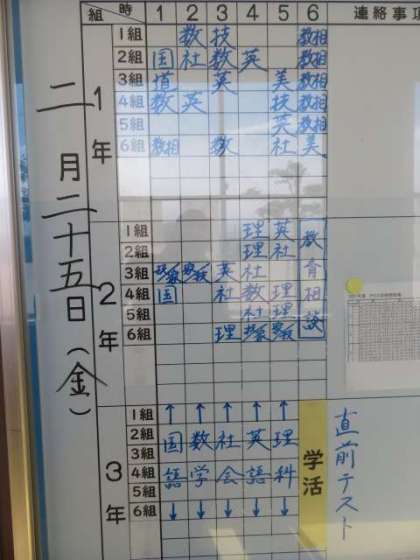 組 時 1 2 3 4 5 6 連絡事項
二月二十五日(金)
1年
1組 数 技 教相
2組 国 社 数 英 教相
3組 道 英 美 教相
4組 数 英 技 教相
5組 英 教相
6組 教相 数 社 美
2年
1組 理 英
2組 理 社
3組 英 社
4組 国 社 数 理
5組 社 理
6組 理
教育相談
3年
1組 ↑ ↑ ↑ ↑ ↑
2組 国 数 社 英 理
3組
4組 語 学 会 語 科
5組
6組 ↓ ↓ ↓ ↓ ↓
学活
直前テスト